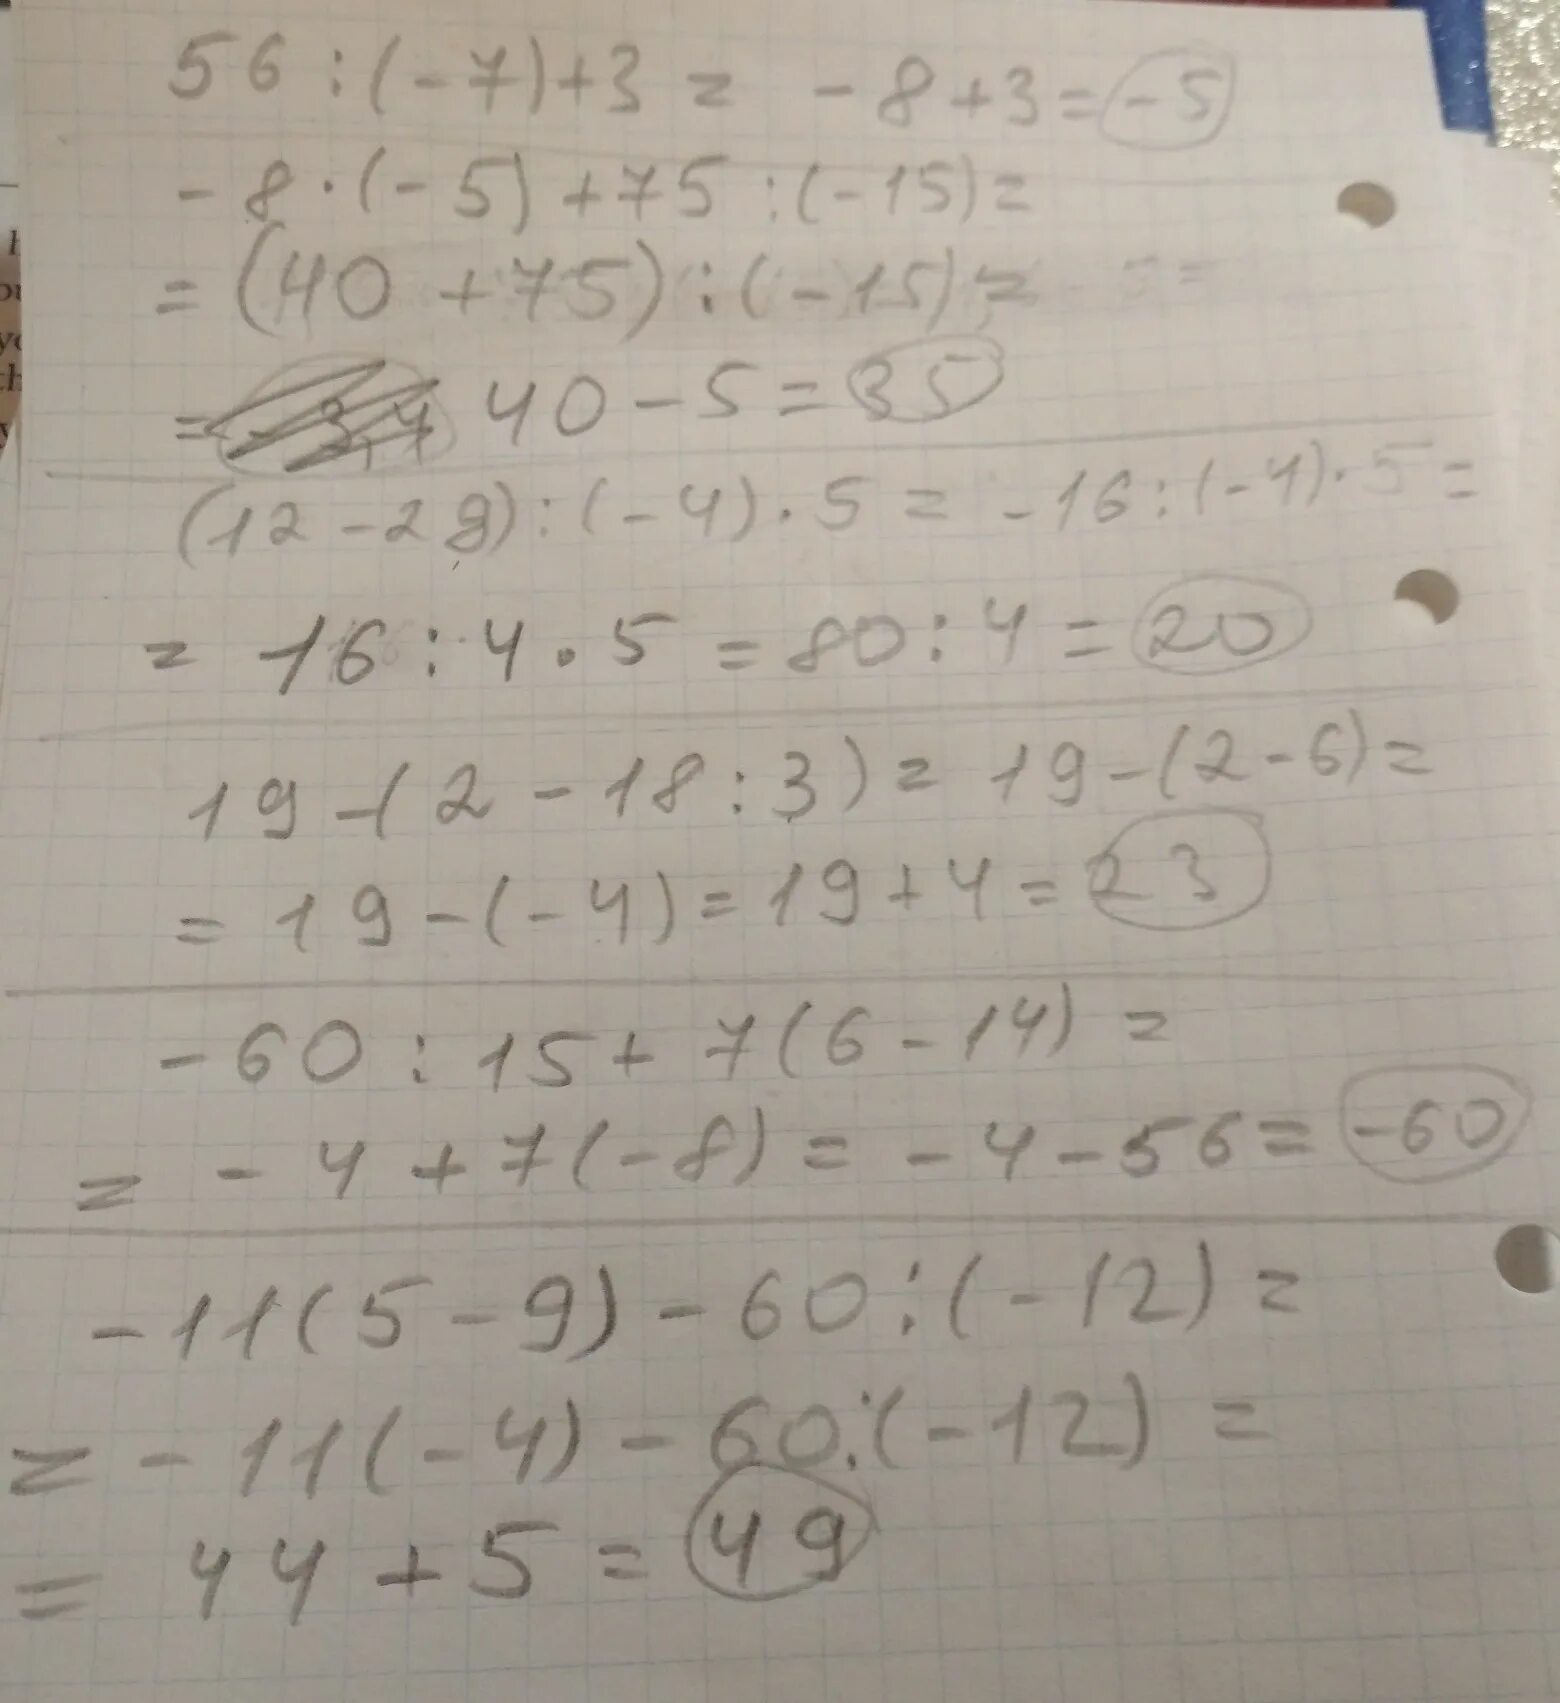 56 : (-7) + 3 = -8 + 3 = -5
-8 · (-5) + 75 : (-15) =
= (40 + 75) : (-15) =
= 40 - 5 = 35
(12 - 28) : (-4) · 5 = -16 : (-4) · 5 =
= 16 : 4 · 5 = 80 : 4 = 20
19 - (2 - 18 : 3) = 19 - (2 - 6) =
= 19 - (-4) = 19 + 4 = 23
-60 : 15 + 7(6 - 14) =
= -4 + 7(-8) = -4 - 56 = -60
-11(5 - 9) - 60 : (-12) =
= -11(-4) - 60 : (-12) =
= 44 + 5 = 49